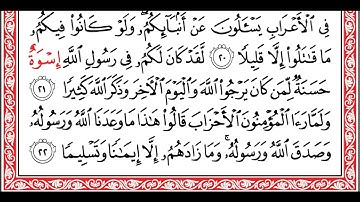 فِى ٱلْأَعْرَابِ يَسْـَٔلُونَ عَنْ أَنۢبَآئِكُمْ ۖ وَلَوْ كَانُوا۟ فِيكُم
مَّا قَٰتَلُوٓا۟ إِلَّا قَلِيلًا ٢٠ لَّقَدْ كَانَ لَكُمْ فِى رَسُولِ ٱللَّهِ إِسْوَةٌ
حَسَنَةٌ لِّمَن كَانَ يَرْجُوا۟ ٱللَّهَ وَٱلْيَوْمَ ٱلْءَاخِرَ وَذَكَرَ ٱللَّهَ كَثِيرًا ٢١
وَلَمَّا رَءَا ٱلْمُؤْمِنُونَ ٱلْأَحْزَابَ قَالُوا۟ هَٰذَا مَا وَعَدَنَا ٱللَّهُ وَرَسُولُهُۥ
وَصَدَقَ ٱللَّهُ وَرَسُولُهُۥ ۚ وَمَا زَادَهُمْ إِلَّآ إِيمَٰنًا وَتَسْلِيمًا ٢٢